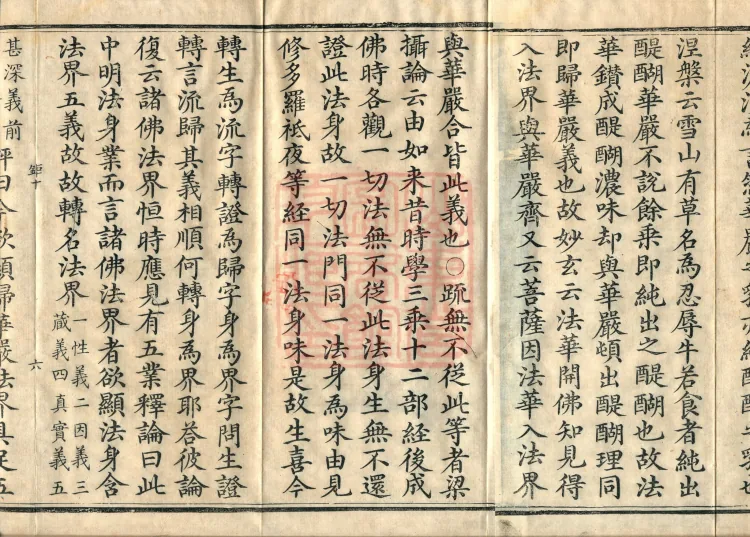 涅槃云雪山有草名為忍辱牛若食者純出
醍醐華嚴不説餘乗即純出之醍醐也故法
華鑚成醍醐濃味却與華嚴頓出醍醐理同
即歸華嚴義也故妙玄云法華開佛知見得
入法界與華嚴齊又云菩薩因法華入法界
與華嚴合皆此義也○䟽無不從此等者梁
攝論云由如来昔時學三乗十二部経後成
佛時各觀一切法無不從此法身生無不還
證此法身故一切法門同一法身為味由見
修多羅祇夜等経同一法身味是故生喜今
轉生為流字轉證為歸字身為界字問生證
轉言流歸其義相順何轉身為界耶荅彼論
復云諸佛法界恒時應見有五業釋論曰此
中明法身業而言諸佛法界者欲顯法身含
法界五義故故轉名法界一性義二因義三
藏義四真實義五
鉅十 六
甚深義前